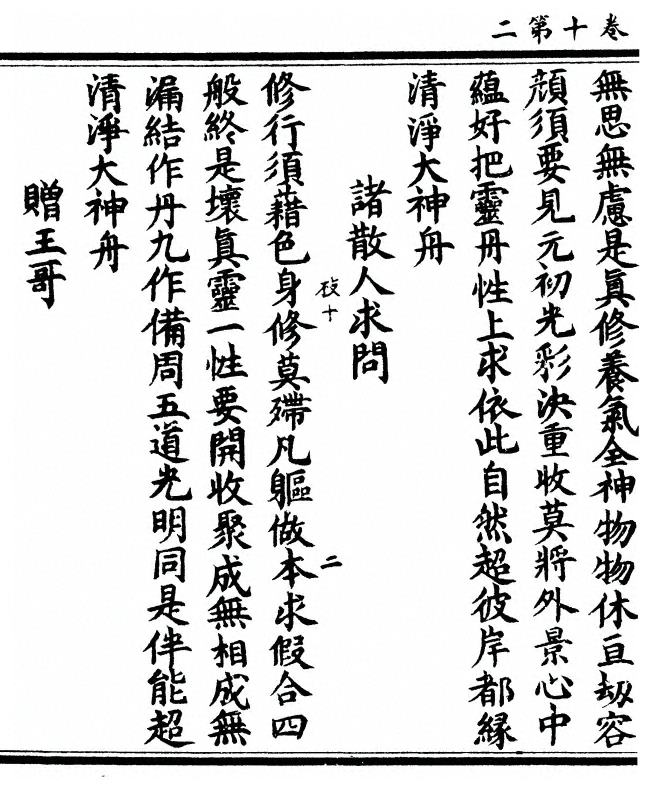 卷十第二
無思無慮是眞修養氣全神物物休亘劫容
顔須要見元初光彩決重收莫將外景心中
蘊好把靈丹性上求依此自然超彼岸都緣
清淨大神舟
諸散人求問
修行須藉色身修莫殢凡軀做本求假合四
般終是壞眞靈一性要開收聚成無相成無
漏結作丹九作備周五道光明同是伴能超
清淨大神舟
贈王哥
十
二